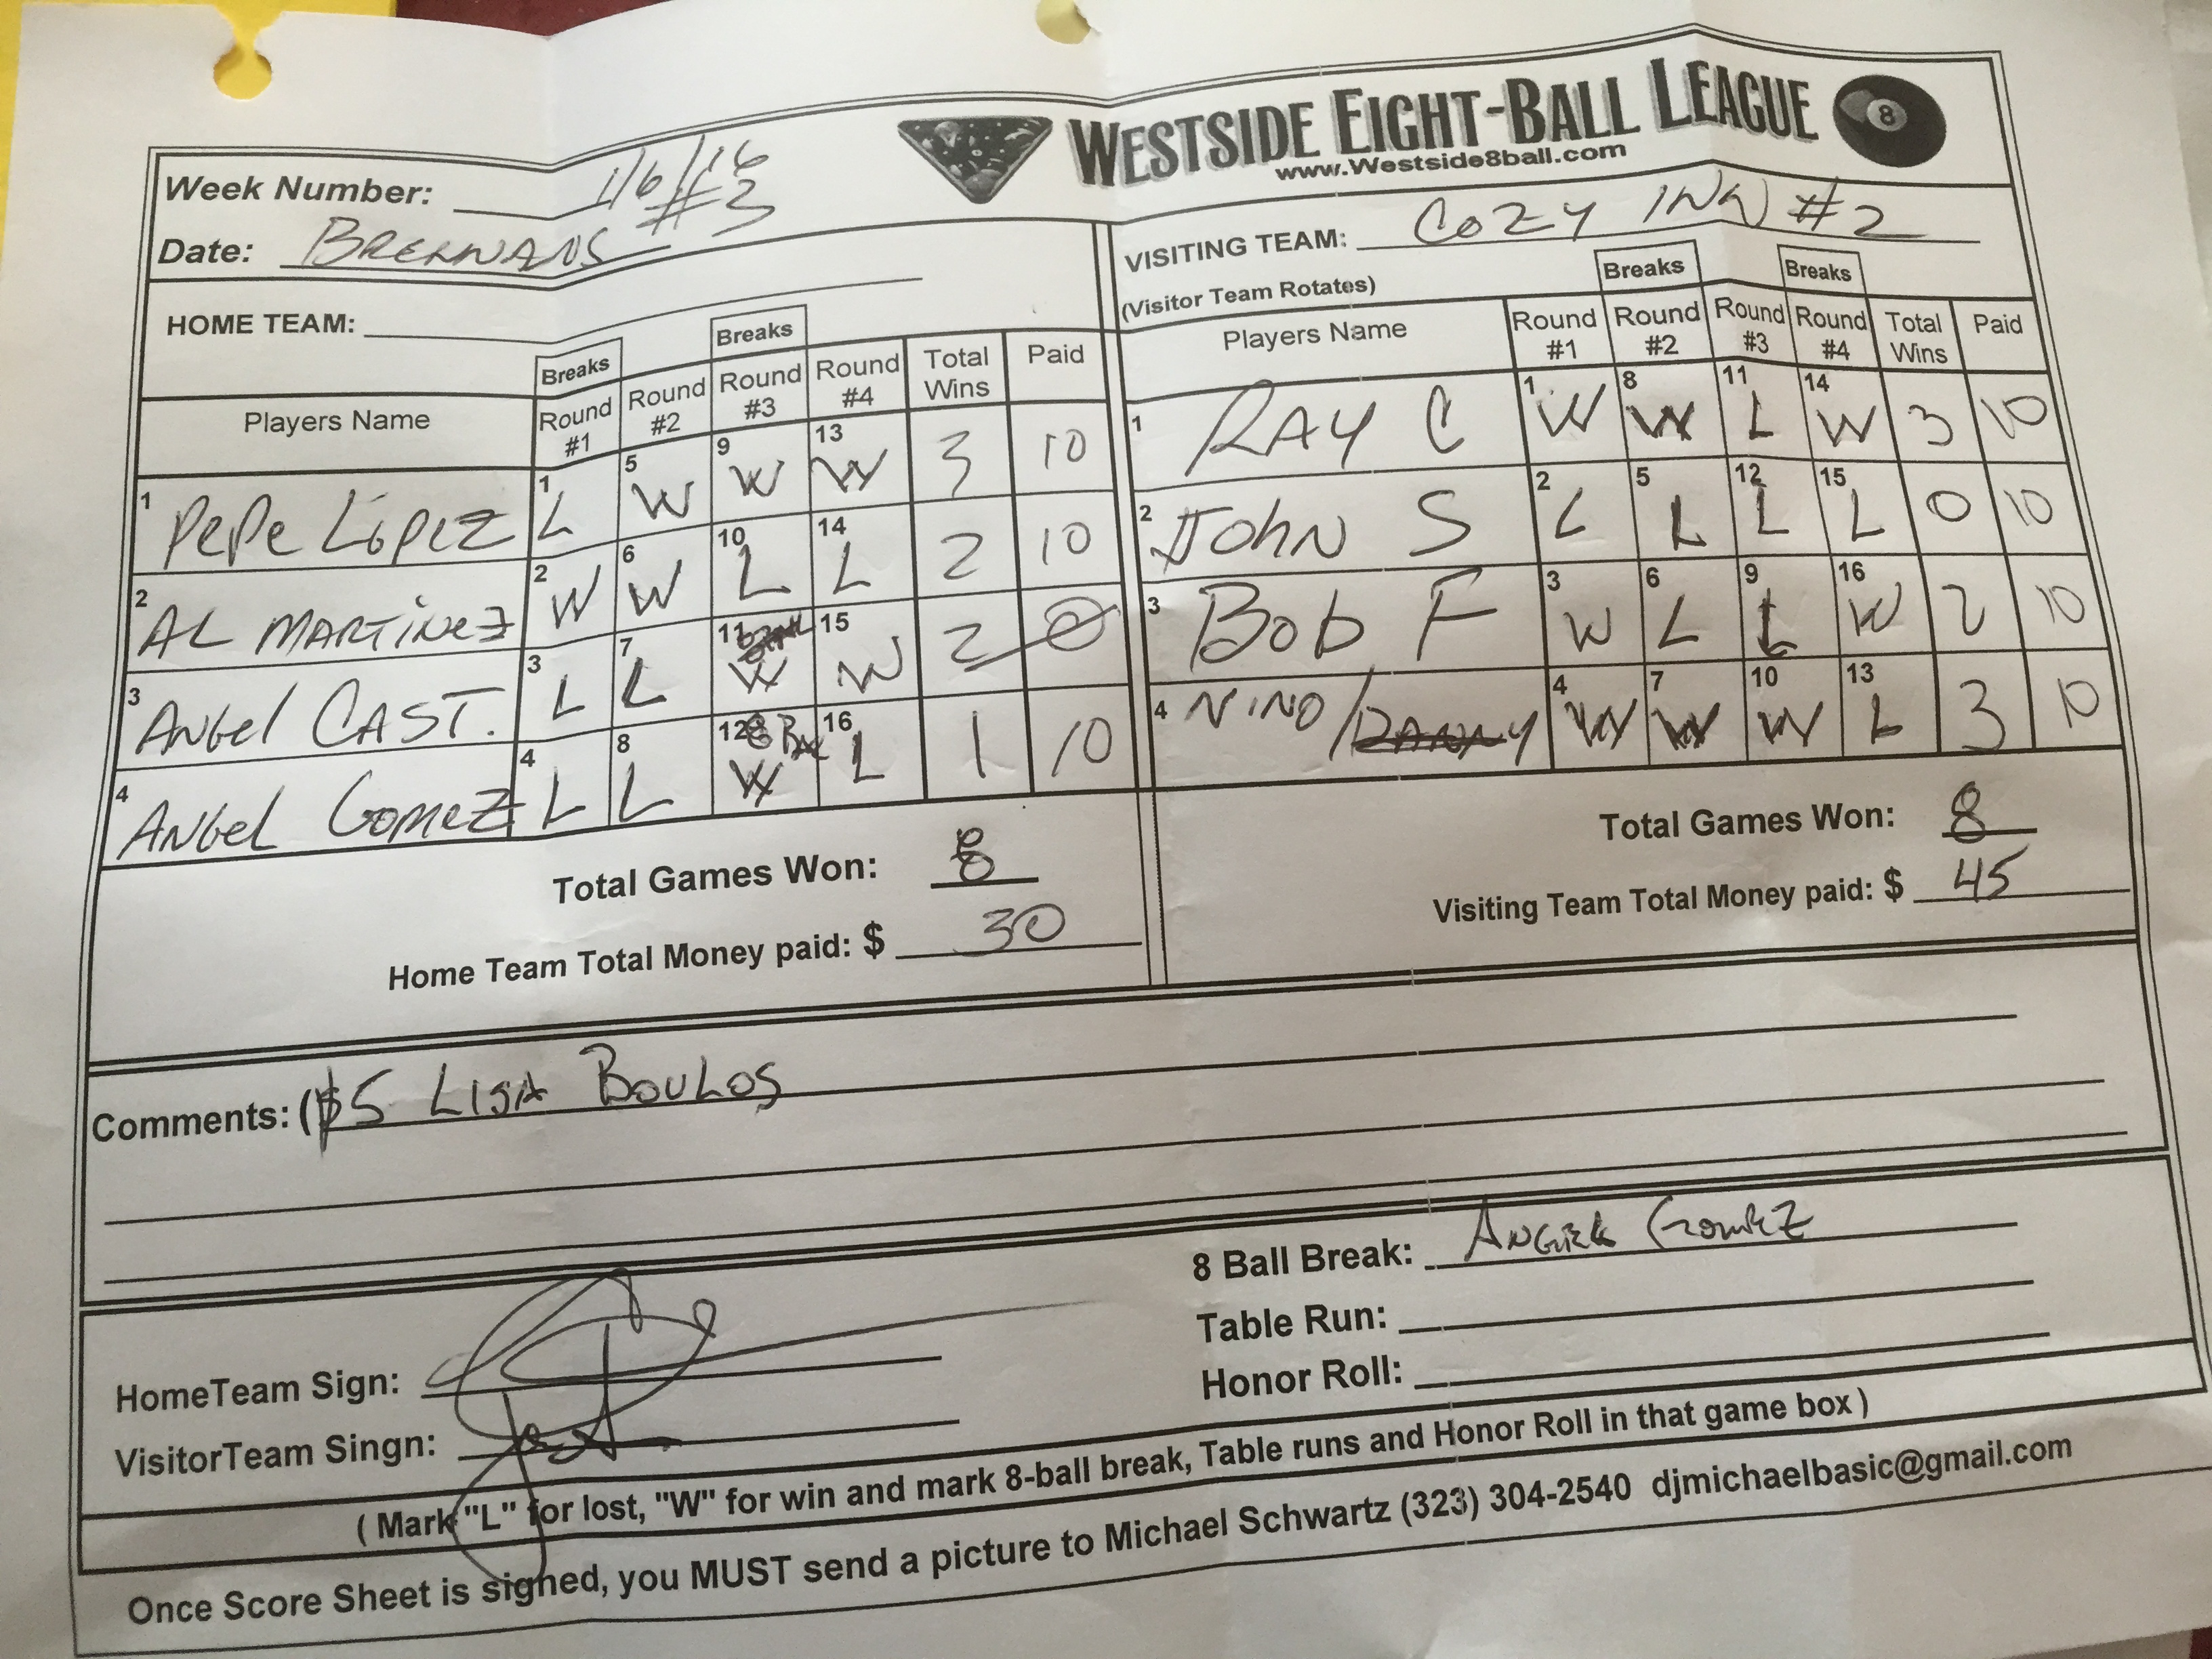 WESTSIDE EIGHT-BALL LEAGUE 8
www.Westside8ball.com
Week Number: 1/6/16
#3
Date: BRENNANS
HOME TEAM:
VISITING TEAM: COZY INN #2
(Visitor Team Rotates)
Breaks Breaks
Players Name Round #1 Round #2 Round #3 Round #4 Total Wins Paid
1 PEPE LOPEZ 1 L 5 W 9 W 13 W 3 10
2 AL MARTINEZ 2 W 6 W 10 L 14 L 2 10
3 ANGEL CAST. 3 L 7 L 11 W 15 W 2 0
4 ANGEL GOMEZ 4 L 8 L 12 W 16 L 1 10
Total Games Won: 8
Home Team Total Money paid: $ 30
Breaks Breaks
Players Name Round #1 Round #2 Round #3 Round #4 Total Wins Paid
1 RAY C 1 W 8 W 11 L 14 W 3 10
2 JOHN S 2 L 5 L 12 L 15 L 0 10
3 BOB F 3 W 6 L 9 L 16 W 2 10
4 NINO/DANNY 4 W 7 W 10 W 13 L 3 10
Total Games Won: 8
Visiting Team Total Money paid: $ 45
Comments: ($5 LISA BOULOS
8 Ball Break: ANGEL GOMEZ
Table Run:
Honor Roll:
HomeTeam Sign:
VisitorTeam Singn:
( Mark "L" for lost, "W" for win and mark 8-ball break, Table runs and Honor Roll in that game box )
Once Score Sheet is signed, you MUST send a picture to Michael Schwartz (323) 304-2540 djmichaelbasic@gmail.com